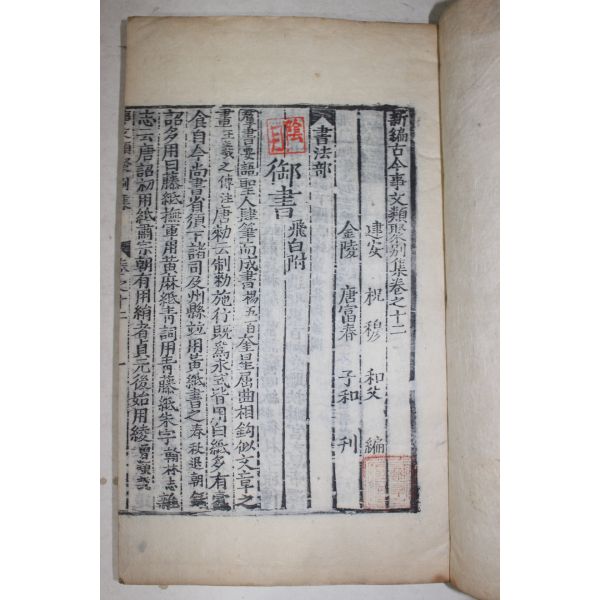 新編古今事文類聚別集卷之十二
建安 祝穆 和父 編
金陵 唐富春 子和 刊
書法部
御書 飛白附
羣書要語聖人肆筆而成書楊五百奎星屈曲相鈎似文章之
畫王羲之傳注唐勑云制勑施行旣為永式皆用白紙多有蠧
食自今尚書省須下諸司及州縣竝用黃紙書之春秋退朝錄
詔多用白藤紙撫軍用黃麻紙靑詞用靑藤紙朱字翰林志
志云唐詔初用紙肅宗朝有用絹者貞元後始用綾
事文類聚別集 卷之十二
陰